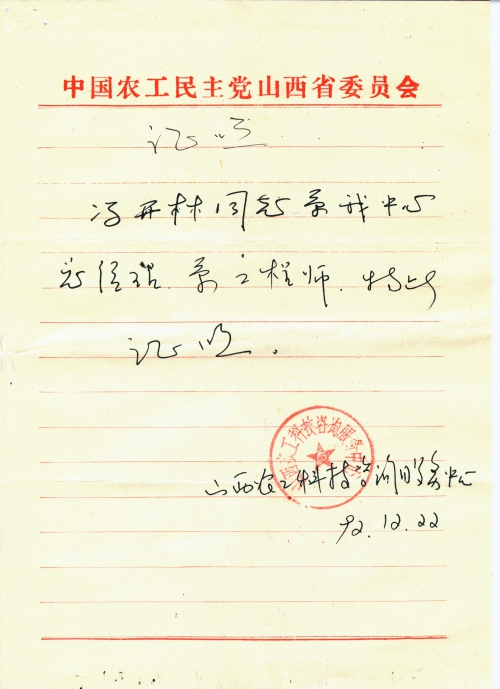 中国农工民主党山西省委员会
证明
冯开林同志系我中心
总经理、系工程师. 特此
证明。
山西农工科技咨询服务中心
山西农工科技咨询服务中心
92.12.22